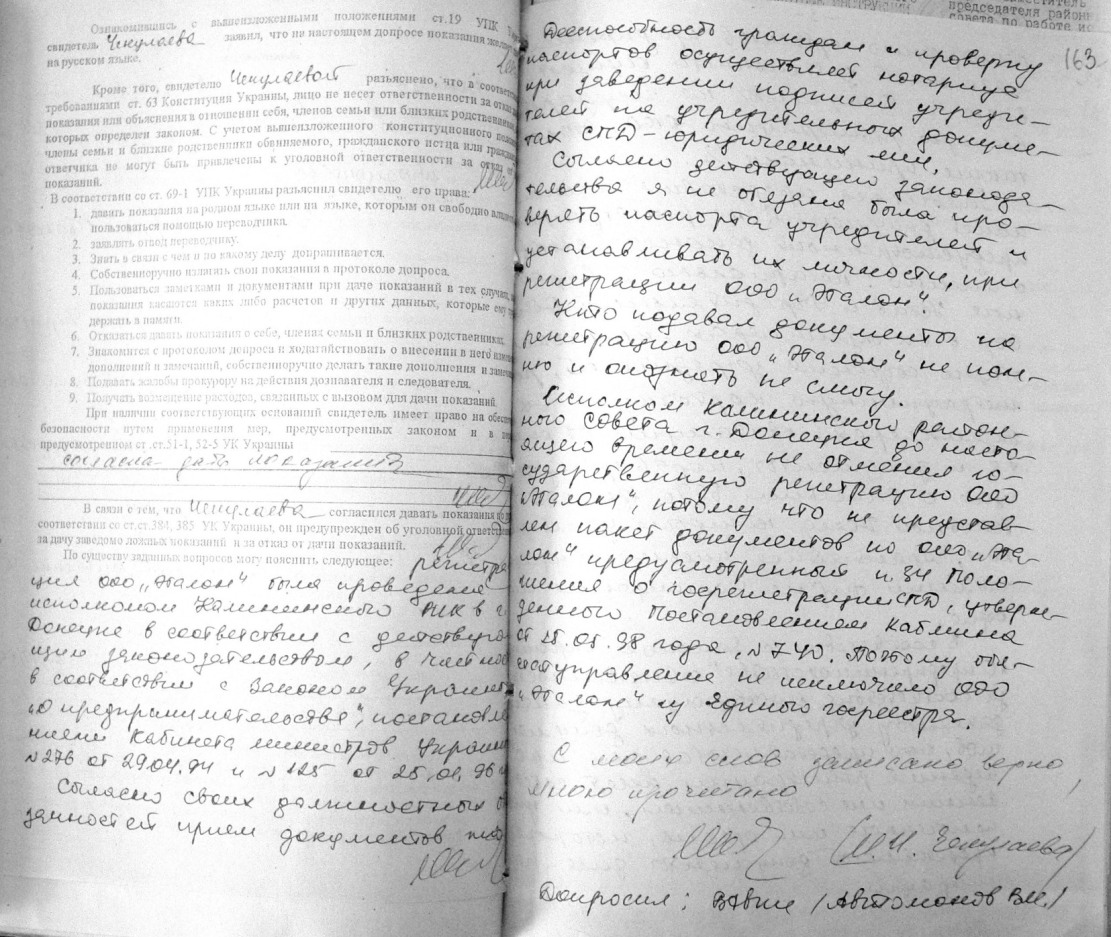 Ознакомившись с вышеизложенными положениями ст.19 УПК
свидетель Чекулаева заявил, что на настоящем допросе показания
на русском языке.
Кроме того, свидетелю Чекулаевой разъяснено, что в
требованиями ст. 63 Конституции Украины, лицо не несет ответственности за отказ
показания или объяснения в отношении себя, членов семьи или близких родственни
которых определен законом. С учетом вышеизложенного конституционного
члены семьи и близкие родственники обвиняемого, гражданского истца или
ответчика не могут быть привлечены к уголовной ответственности за отказ
показаний.
В соответствии со ст. 69-1 УПК Украины разъяснил свидетелю его права:
1. давать показания на родном языке или на языке, которым он свободно
пользоваться помощью переводчика.
2. заявлять отвод переводчику.
3. Знать в связи с чем и по какому делу допрашивается.
4. Собственноручно излагать свои показания в протоколе допроса.
5. Пользоваться заметками и документами при даче показаний в тех случаях,
показания касаются каких либо расчетов и других данных, которые ему
держать в памяти.
6. Отказаться давать показания о себе, членах семьи и близких родственниках.
7. Знакомится с протоколом допроса и ходатайствовать о внесении в него
дополнений и замечаний, собственноручно делать такие дополнения и
8. Подавать жалобы прокурору на действия дознавателя и следователя.
9. Получать возмещение расходов, связанных с вызовом для дачи показаний.
При наличии соответствующих оснований свидетель имеет право на
безопасности путем применения мер, предусмотренных законом и в
предусмотренном ст.ст.51-1, 52-5 УК Украины
согласна дать показания
В связи с тем, что Чекулаева согласился давать показания
соответствии со ст.ст.384, 385 УК Украины, он предупрежден об уголовной
за дачу заведомо ложных показаний и за отказ от дачи показаний.
По существу заданных вопросов могу пояснить следующее: регистра
ция ооо „Эталон" была проведена
исполкомом Калининского РИК в г
Донецке в соответствии с действую
щим законодательством, в частнос
в соответствии с Законом Украины
„О предпринимательстве", постановле
нием Кабинета министров Украины
№276 от 29.04.94 и №125 от 25.01.96
Согласно своих должностных
занностей прием документов
председателя район
совета по работе
163
Дееспособность граждан и проверку
паспортов осуществляет нотариус
при заведении подписей учреди-
телей на учредительных докуме-
тах СПД-юридических лиц.
Согласно действующего законода-
тельства я не обязана была про-
верять паспорта учредителей и
устанавливать их личности, при
регистрации ООО „Эталон"
Кто подавал документы на
регистрацию ооо „Эталон" не пом-
ню и опознать не смогу.
Исполком Калининского район-
ного совета г. Донецка до насто-
ящего времени не отменил го-
сударственную регистрацию ооо
„Эталон", потому что не представ-
лен пакет документов по ооо „Эта-
лон" предусмотренный п.34 Поло-
жения о госрегистрации СПД, утверж-
денного Постановлением Кабмина
от 25.05.98 года, №740. Поэтому обл-
статуправление не исключило ООО
„Эталон" из Единого госреестра.
С моих слов записано верно,
мною прочитано
(И.И. Чекулаева)
Допросил: (Автомонов В.М.)